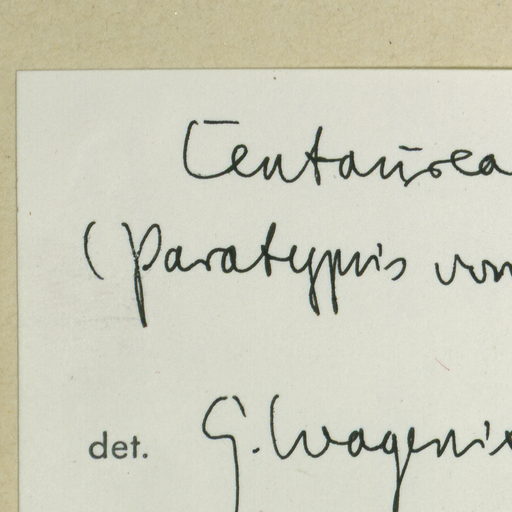 Centaurea
(Paratypus von
det. G. Wageni